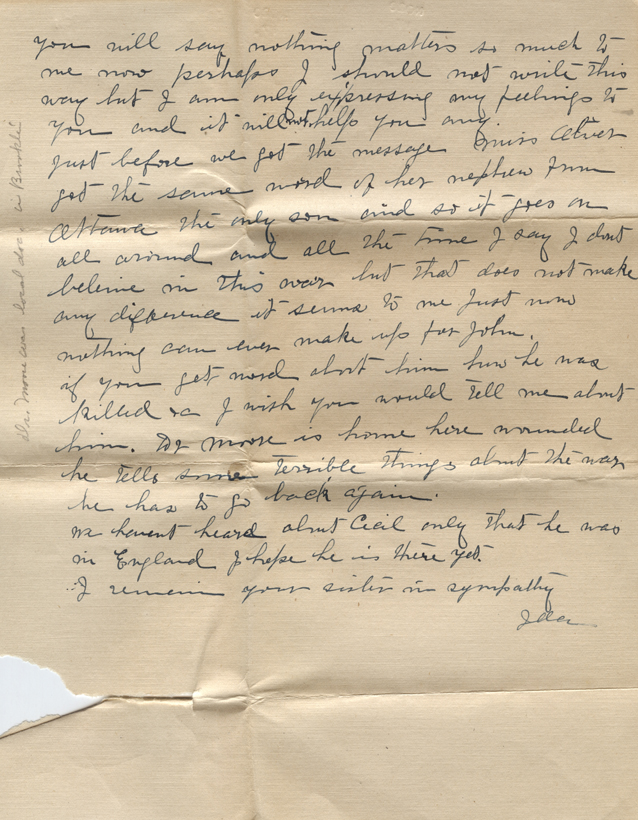 you will say nothing matters so much to
me now perhaps I should not write this
way but I am only expressing my feelings to
you and it will not help you any.
Just before we got the message Miss Oliver
got the same word of her nephew from
Ottawa the only son and so it goes on
all around and all the time I say I dont
believe in this war but that does not make
any difference it seems to me just now
nothing can ever make up for John.
if you get word about him how he was
killed I wish you would tell me about
him. Dr Moore is home here wounded
he tells some terrible things about the war
he has to go back again.
we havent heard about Cecil only that he was
in England I hope he is there yet.
I remain your sister in sympathy
Ida
Dr. Moore was local doc. in